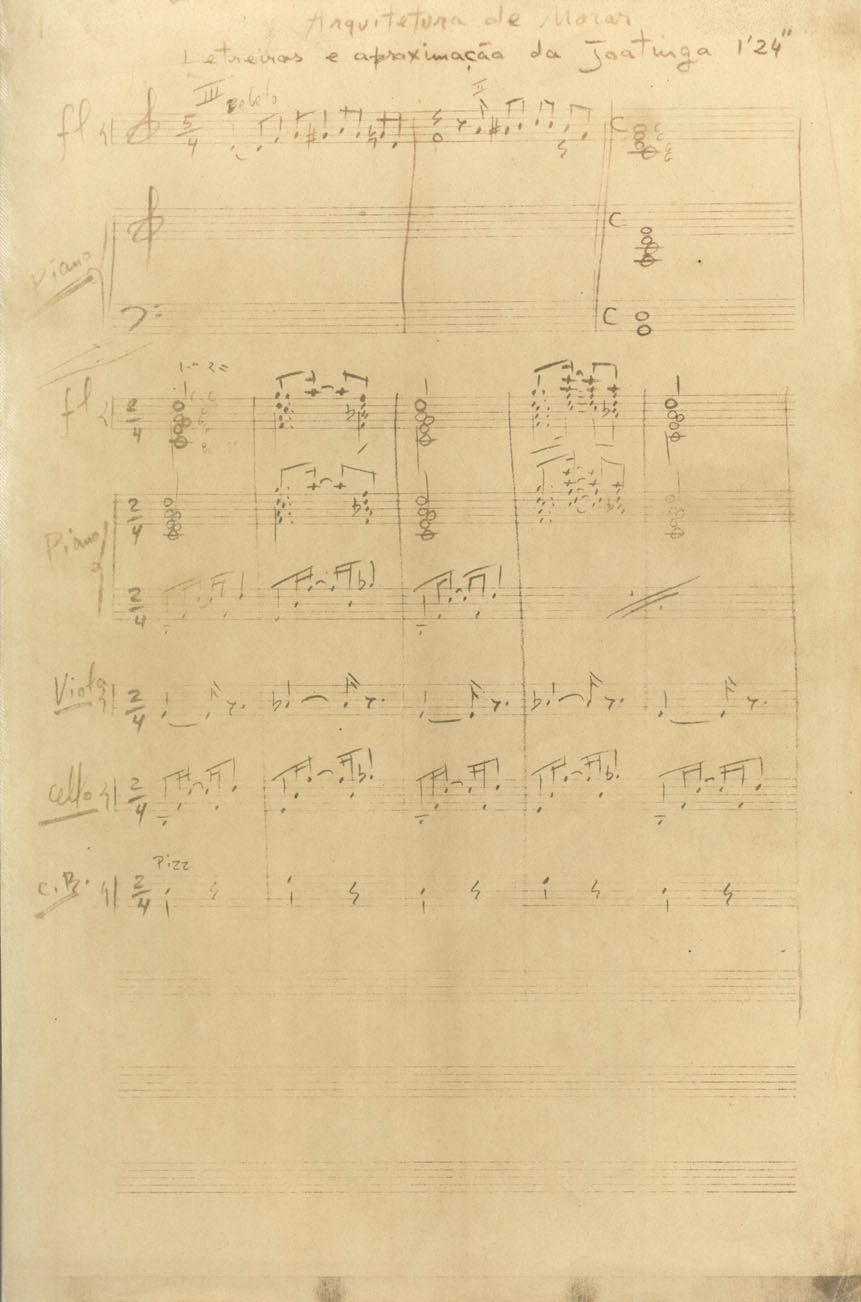 Arquitetura de Morar
Letreiros e aproximação da Joatinga 1'24"
III Bebeto
II
fl
5/4
C
Piano
C
C
1. 2.
fl
2/4
Piano
2/4
2/4
Viola
2/4
Cello
2/4
Pizz
C.B.
2/4